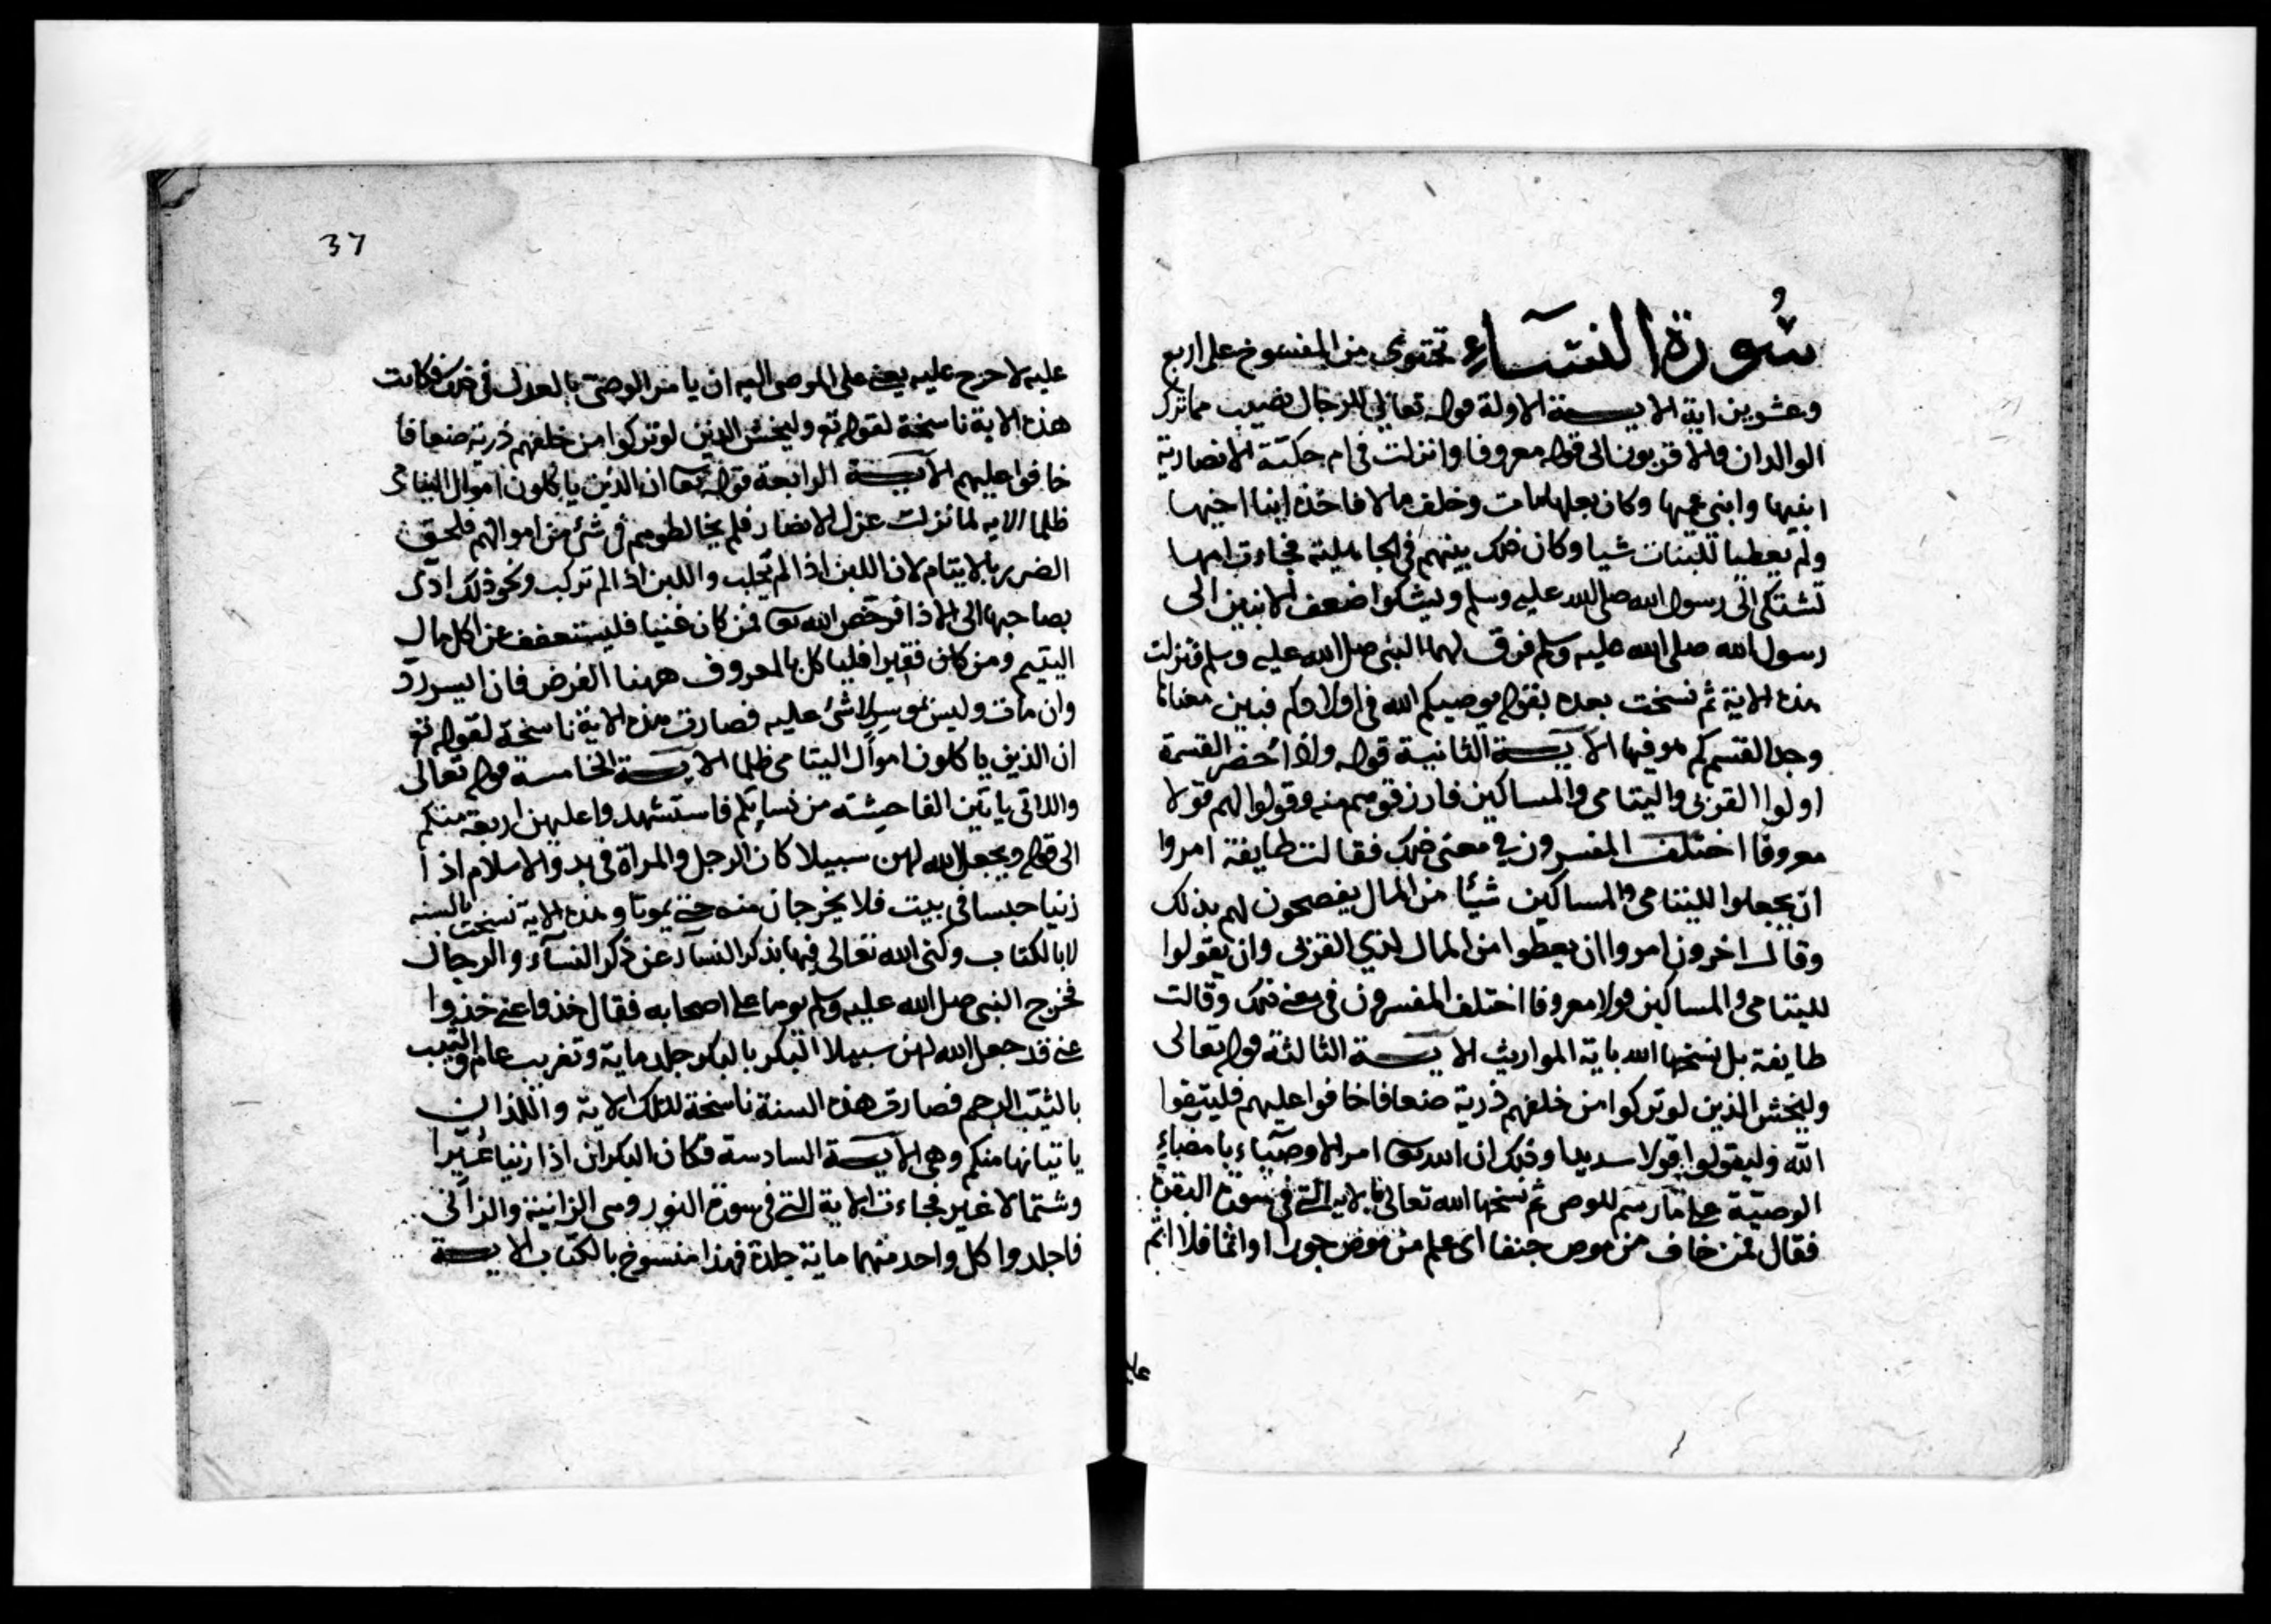 سُورة النسَاءِ تحتوى من المنسوخ على اربع
وعشرين اية الايـة الاولة قوله تعالى للرجال نصيب مما ترك
الوالدان والاقربون الى قوله معروفا وانزلت فى ام حكتة الانصارية
ابنيها وابنى عمها وكان بعلها مات وخلف مالا فاخذه ابنا اخيها
ولم يعطيا للبنات شيا وكان ذلك بينهم فى الجاهلية فجاءت امها
تشتكى الى رسول الله صلى الله عليه وسلم ويشكوا ضعف الابنين الى
رسول الله صلى الله عليه وسلم فرق لهما النبى صلى الله عليه وسلم فنزلت
هذه الاية ثم نسخت بعده بقوله يوصيكم الله فى اولادكم فبين معناها
وجد القسم كم هو فيها الايـة الثانية قوله واذا حضر القسمة
اولوا القربى واليتامى والمساكين فارزقوهم منه وقولوا لهم قولا
معروفا اختلف المفسرون فى معنى ذلك فقالت طايفة امروا
ان يجعلوا لليتامى والمساكين شيئا من المال يفصحون لهم بذلك
وقالـ اخرون امروا ان يعطوا من المال لذي القربى وان يقولوا
لليتامى والمساكين قولا معروفا اختلف المفسرون فى معنى ذلك وقالت
طايفة بل نسخها الله باية المواريث الايـة الثالثة قوله تعالى
وليخش الذين لو تركوا من خلفهم ذرية ضعافا خافوا عليهم فليتقوا
الله وليقولوا قولا سديدا وذلك ان الله تعا امر الاوصياء بامضاء
الوصية على ما رسم للوصى ثم نسخها الله تعالى بالاية التى فى سورة البقرة
فقال فمن خاف من موص جنفا اى علم من موص جورا او اثما فلا اثم
عليه
37
عليه لا حرج عليه يعنى على الموصى اليه ان يامر الوصى بالعدل فى ذلك فكانت
هذه الاية ناسخة لقوله تع وليخش الذين لو تركوا من خلفهم ذرية ضعافا
خافوا عليهم الايـة الرابعة قوله تعا ان الذين ياكلون اموال اليتامى
ظلما الايه لما نزلت عزل الانصار فلم يخالطوهم فى شئ من اموالهم فلحق
الضرر بالايتام لان اللبن اذا لم تحلب واللبن اذا لم تركب ونحو ذلك ادى
بصاحبها الى الاذا فرخص الله تعا فمن كان غنيا فليستعفف عن اكل مال
اليتيم ومن كان فقيرا فلياكل بالمعروف ههنا القرض فان ايسر رد
وان مات وليس بموسر لا شئ عليه فصارت هذه الاية ناسخة لقوله تع
ان الذين ياكلون اموال اليتامى ظلما الايـة الخامسة قوله تعالى
واللاتى ياتين الفاحشته من نسايكم فاستشهدوا عليهن اربعة منكم
الى قوله ويجعل الله لهن سبيلا كان الرجل والمراة فى بدو الاسلام اذا
زنيا حبسا فى بيت فلا يخرجان منه حتى يموتا وهذه الاية نسخت بالسنه
لا بالكتاب وكنى الله تعالى فيها بذكر النسآء عن ذكر النسآء والرجال
فخرج النبى صلى الله عليه وسلم يوما على اصحابه فقال خذوا عنى خذوا
عنى قد جعل الله لهن سبيلا البكر بالبكر جلد ماية وتغريب عام والثيب
بالثيب الرجم فصارت هذه السنة ناسخة لتلك الاية واللذان
ياتيانها منكم وهى الايـة السادسة فكان البكران اذا زنيا عُيّرا
وشتما لا غير فجاءت الاية التى فى سورة النور وهى الزانية والزانى
فاجلدوا كل واحد منهما ماية جلدة فهذا منسوخ بالكتاب الايـة